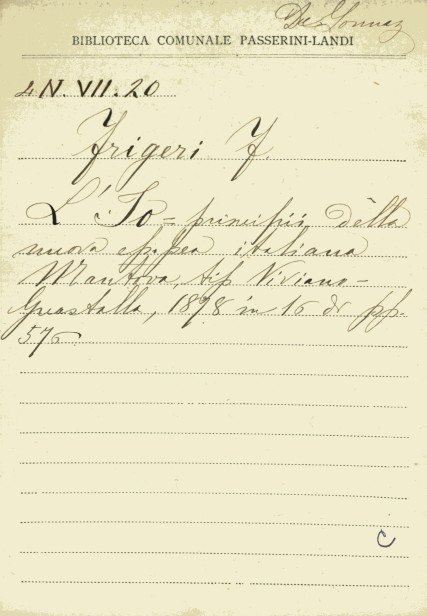 BIBLIOTECA COMUNALE PASSERINI-LANDI
4 N. VII. 20
Frigeri F.
L'Io = principii della
nuova epopea italiana
Mantova, tip Viviano-
Guastalla, 1878 in 16 di pp.
576
C